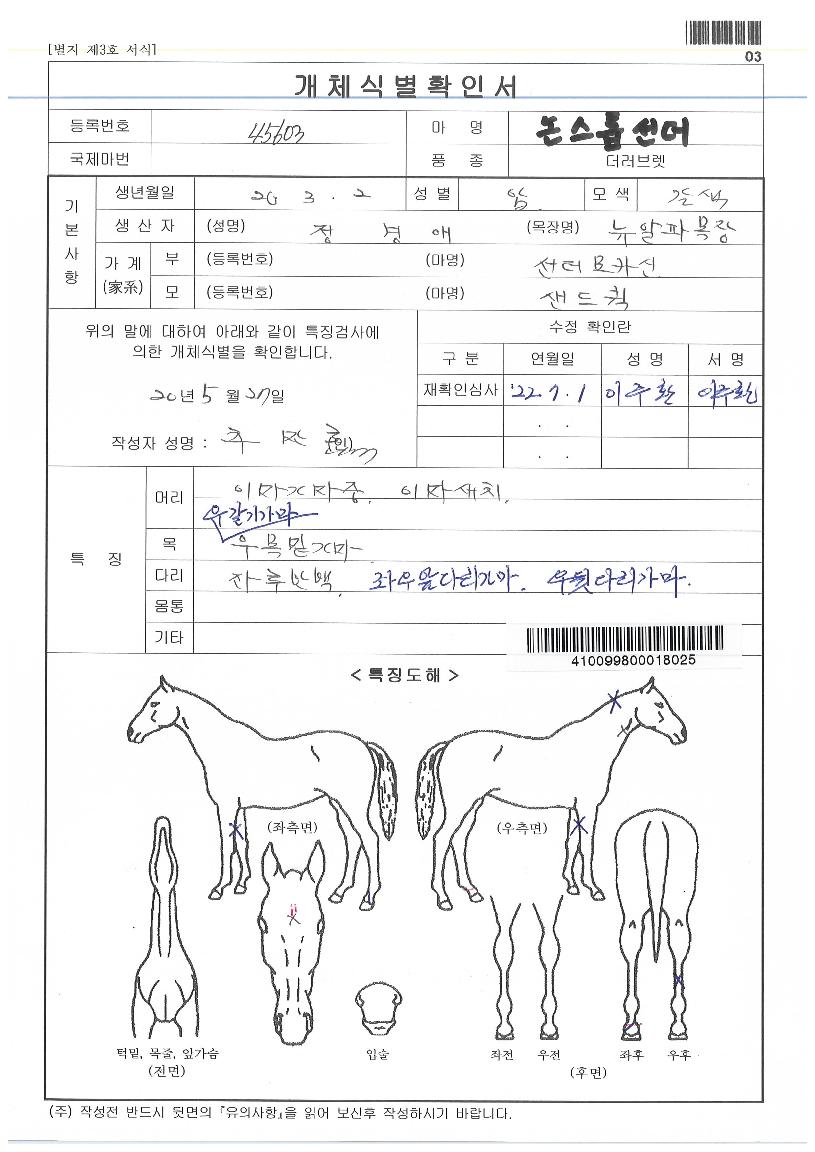 [별지 제3호 서식]
03
개체식별확인서
등록번호 45603 마 명 논스톱선더
국제마번 품 종 더러브렛
기본사항
생년월일 20 3 . 2 성 별 암 모 색 갈색
생 산 자 (성명) 정 경 애 (목장명) 뉴알파목장
가 계 (家系) 부 (등록번호) (마명) 선더모카신
모 (등록번호) (마명) 샌드퀵
위의 말에 대하여 아래와 같이 특징검사에
의한 개체식별을 확인합니다.
20년 5 월 27일
작성자 성명 : (인)
수정 확인란
구 분 연월일 성 명 서 명
재확인심사 '22. 7. 1 이주환 이주환
. .
. .
특 징
머리 이마가마중, 이마새치,
우갈기가마
목 우목밑가마
다리 좌후반백, 좌우앞다리가마, 우뒷다리가마.
몸통
기타
410099800018025
< 특징도해 >
(좌측면) (우측면)
턱밑, 목줄, 앞가슴
(전면)
입술
좌전 우전 좌후 우후
(후면)
(주) 작성전 반드시 뒷면의 『유의사항』을 읽어 보신후 작성하시기 바랍니다.